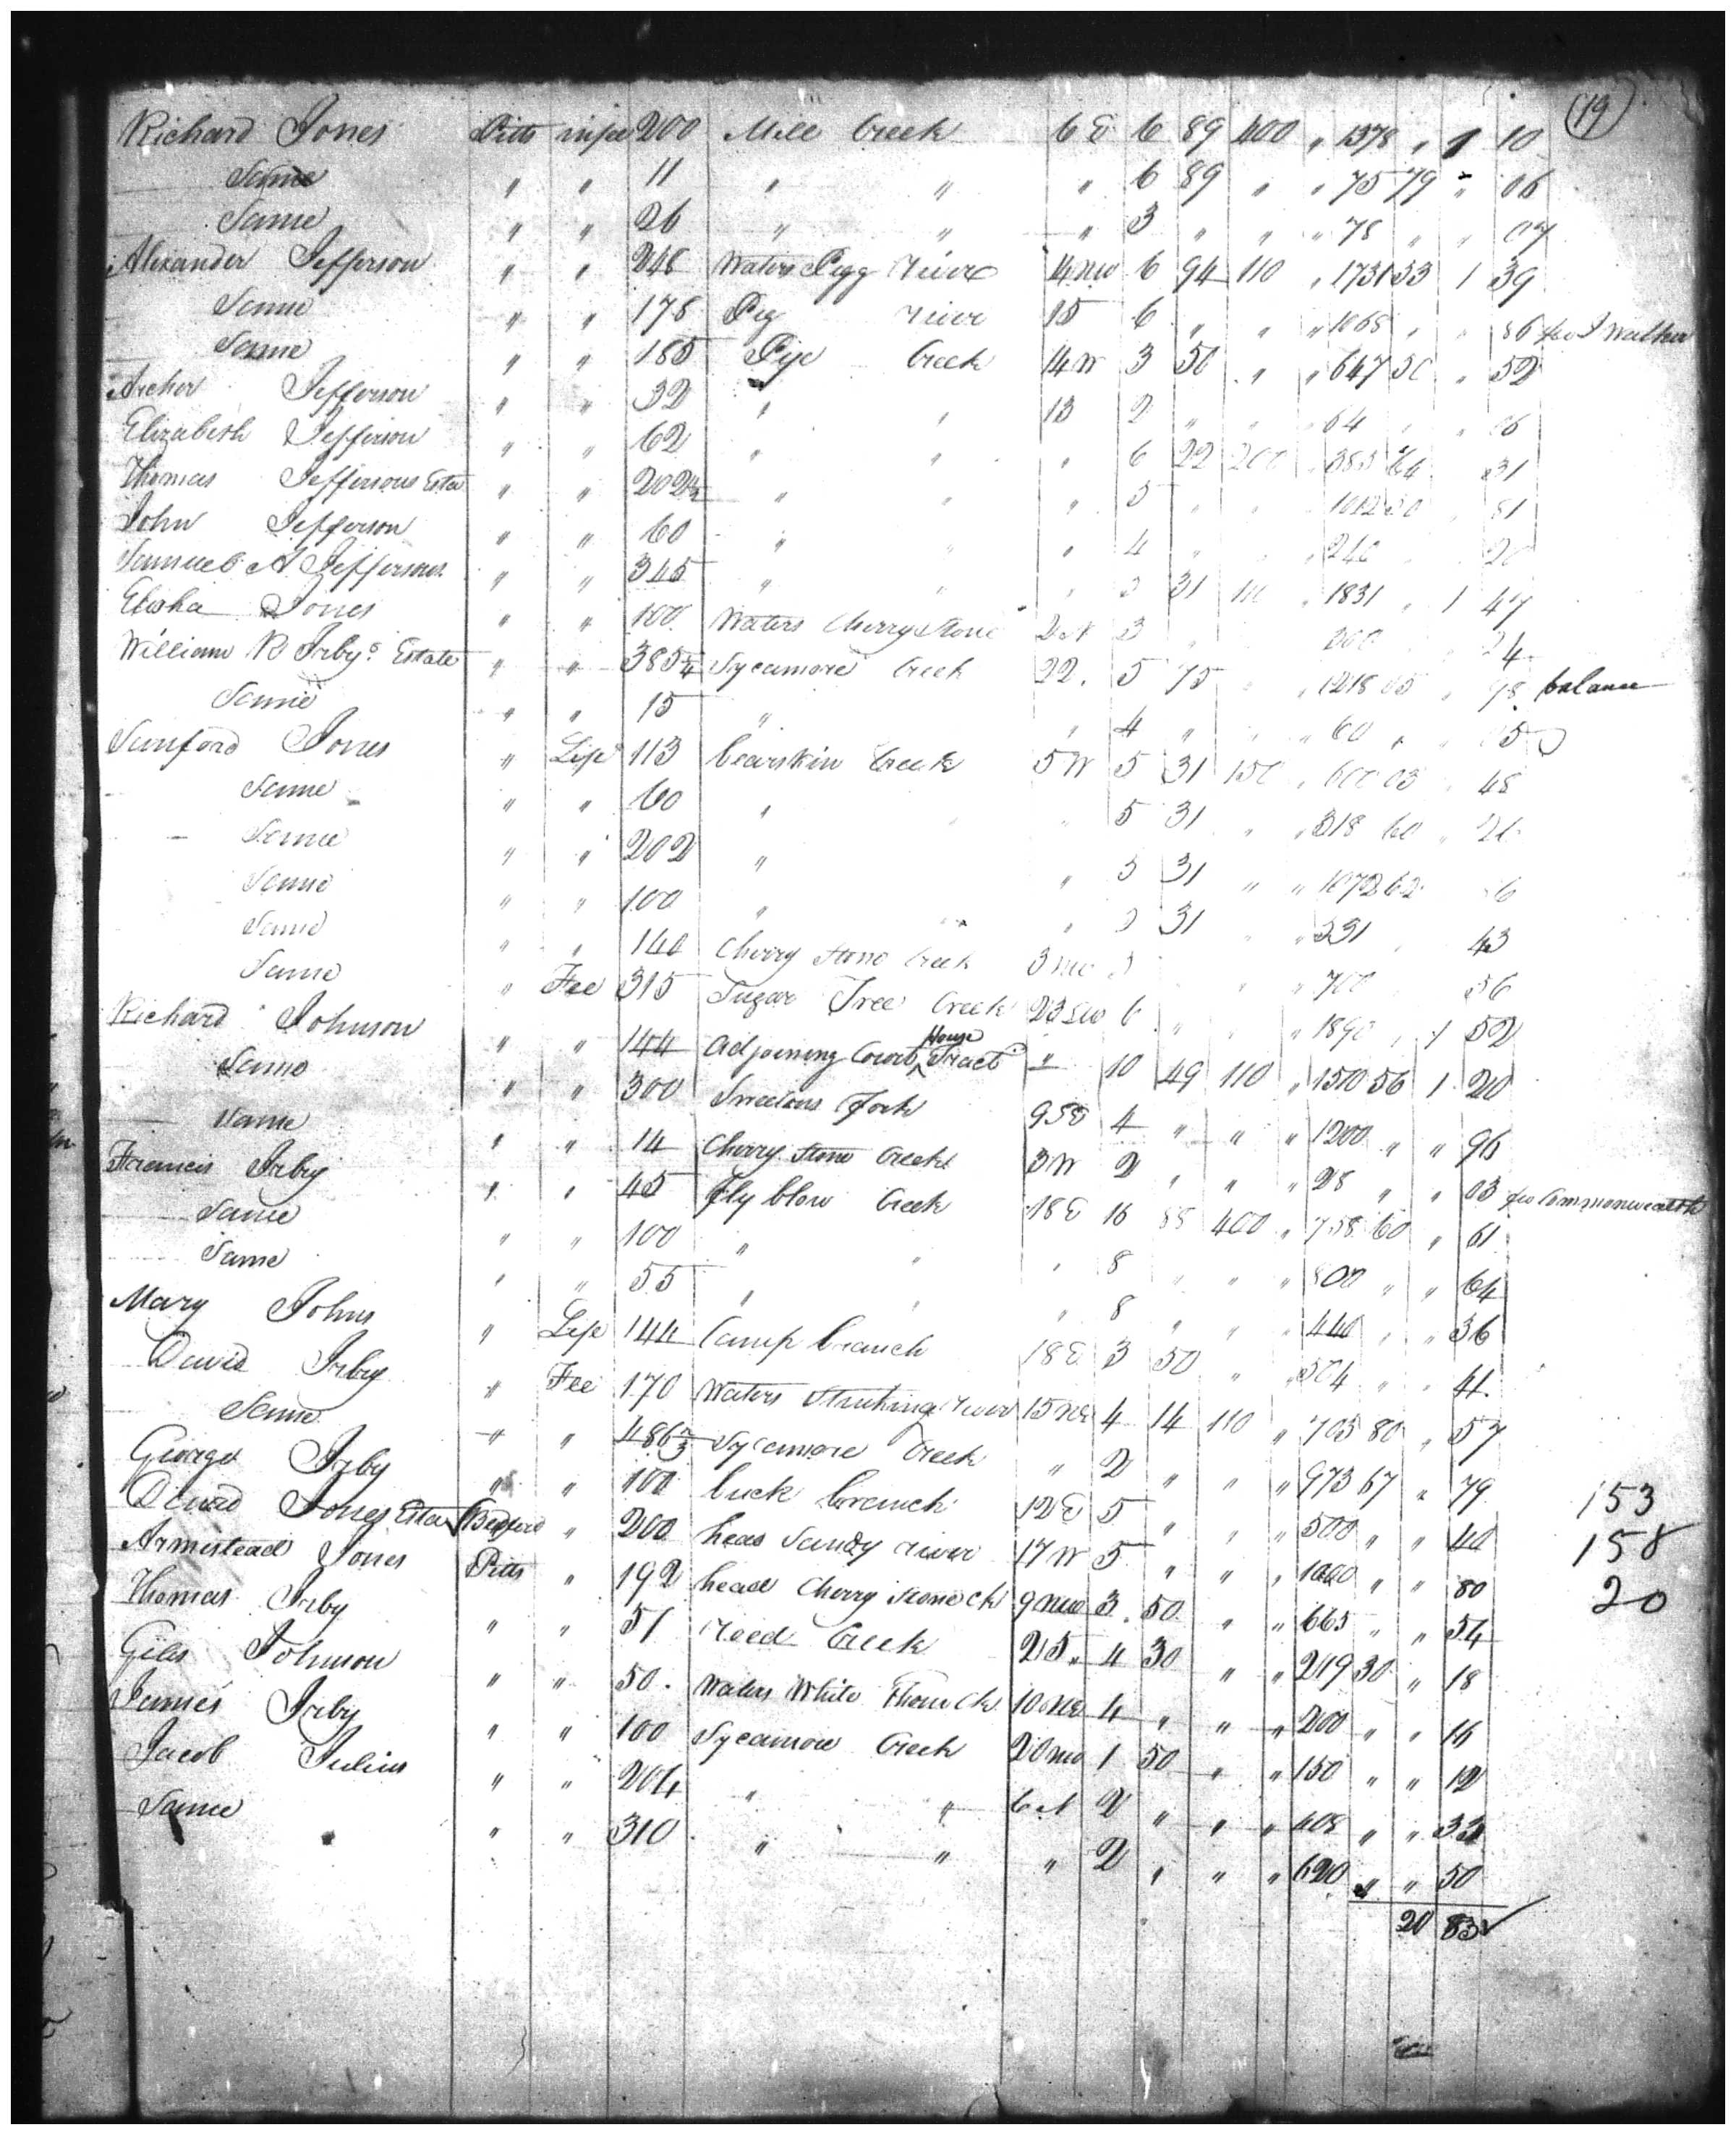 19
Richard Jones Pitts in fee 200 Mill Creek 6 E 6 89 400 " 1378 " 1 10
Same " " 11 " " " 6 89 " " 75 79 " 06
Same " " 26 " " " 3 " " " 78 " " 07
Alexander Jefferson " " 248 Waters Pigg river 14 NW 6 94 110 " 1731 53 1 39
Same " " 178 Pig river 15 6 " " " 1068 " " 86 J Walker
Same " " 185 Pye Creek 14 W 3 50 " " 647 50 " 52
Archer Jefferson " " 32 " " 13 2 " " " 64 " " 06
Elizabeth Jefferson " " 62 " " " 6 22 200 " 385 64 31
Thomas Jeffersons Esta " " 202½ " " " 5 " " 1012 50 " 81
John Jefferson " " 60 " " " 4 " " " 240 20
Samuel A Jefferson " " 345 " " " 5 31 110 " 1831 " 1 47
Elisha Jones " " 100 Waters Cherrystone 2 N 3 " 24
William R Irbys Estate " " 385¼ Sycamore Creek 22 . 5 75 " " 1218 05 " 98 balance
Same " " 15 " " 4 " " " 60 " " 5
Sanford Jones " Life 113 bearskin Creek 5 W 5 31 150 " 600 03 " 48
Same " " 60 " " 5 31 " " 318 60 " 26
Same " " 202 " " 5 31 " " 1072 62
Same " " 100 " " 5 31 " 531 43
Same " " 140 Cherry stone Creek 3 NW 5 " " 700 56
Same " Fee 315 Sugar Tree Creek 23 SW 6 " " " 1890 " 1 52
Richard Johnson " " 144 adjoining Court House Tract " 10 49 110 " 1510 56 1 20
Same " " 300 Sweetons fork 9 SE 4 " " " 1200 " " 96
Same " " 14 Cherry stone Creek 3 W 2 " " " 28 " " 03 Commonwealth
Francis Irby " " 45 Fly blow Creek 18 E 16 88 400 " 758 60 " 61
Same " " 100 " " " 8 " " " 800 " " 64
Same " " 55 " " " 8 " " " 440 " " 36
Mary Johns " Life 144 Camp branch 18 E 3 50 " " 504 " " 41
David Irby " Fee 170 Waters Stinking river 15 NE 4 14 110 " 703 80 " 57
Same " " 486⅔ Sycamore Creek " 2 " " " 973 67 " 79
George Irby " " 100 buck branch 12 E 5 " " " 500 " " 40
David Jones Esta Bedford " 200 head Sandy river 17 W 5 " " " 1000 " " 80
Armistead Jones Pitts " 192 head Cherry stone Ck 9 NW 3 50 " " 665 " " 54
Thomas Irby " " 51 reed Creek 25 " 4 30 " " 219 30 " 18
Giles Johnson " " 50 . Waters White Thorn Ck 10 NE 4 " " " 200 " " 16
James Irby " " 100 Sycamore Creek 20 NW 1 50 " " 150 " " 12
Jacob Julius " " 204 " " 6 N 2 " " " 408 " " 33
Same " " 310 " " " 2 " " " 620 " " 50
20 83
153
158
20